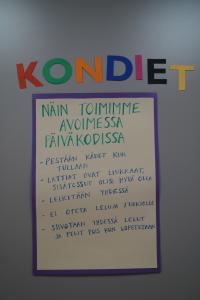 KONDIET
NÄIN TOIMIMME
AVOIMESSA
PÄIVÄKODISSA
- PESTÄÄN KÄDET KUN
TULLAAN
- LATTIAT OVAT LIUKKAAT,
SISÄTOSSUT OLISI HYVÄ OLLA
- LEIKITÄÄN YHDESSÄ
- EI OTETA LELUJA
- SIIVOTAAN YHDESSÄ LELUT
JA PELIT POIS KUN LOPETETAAN